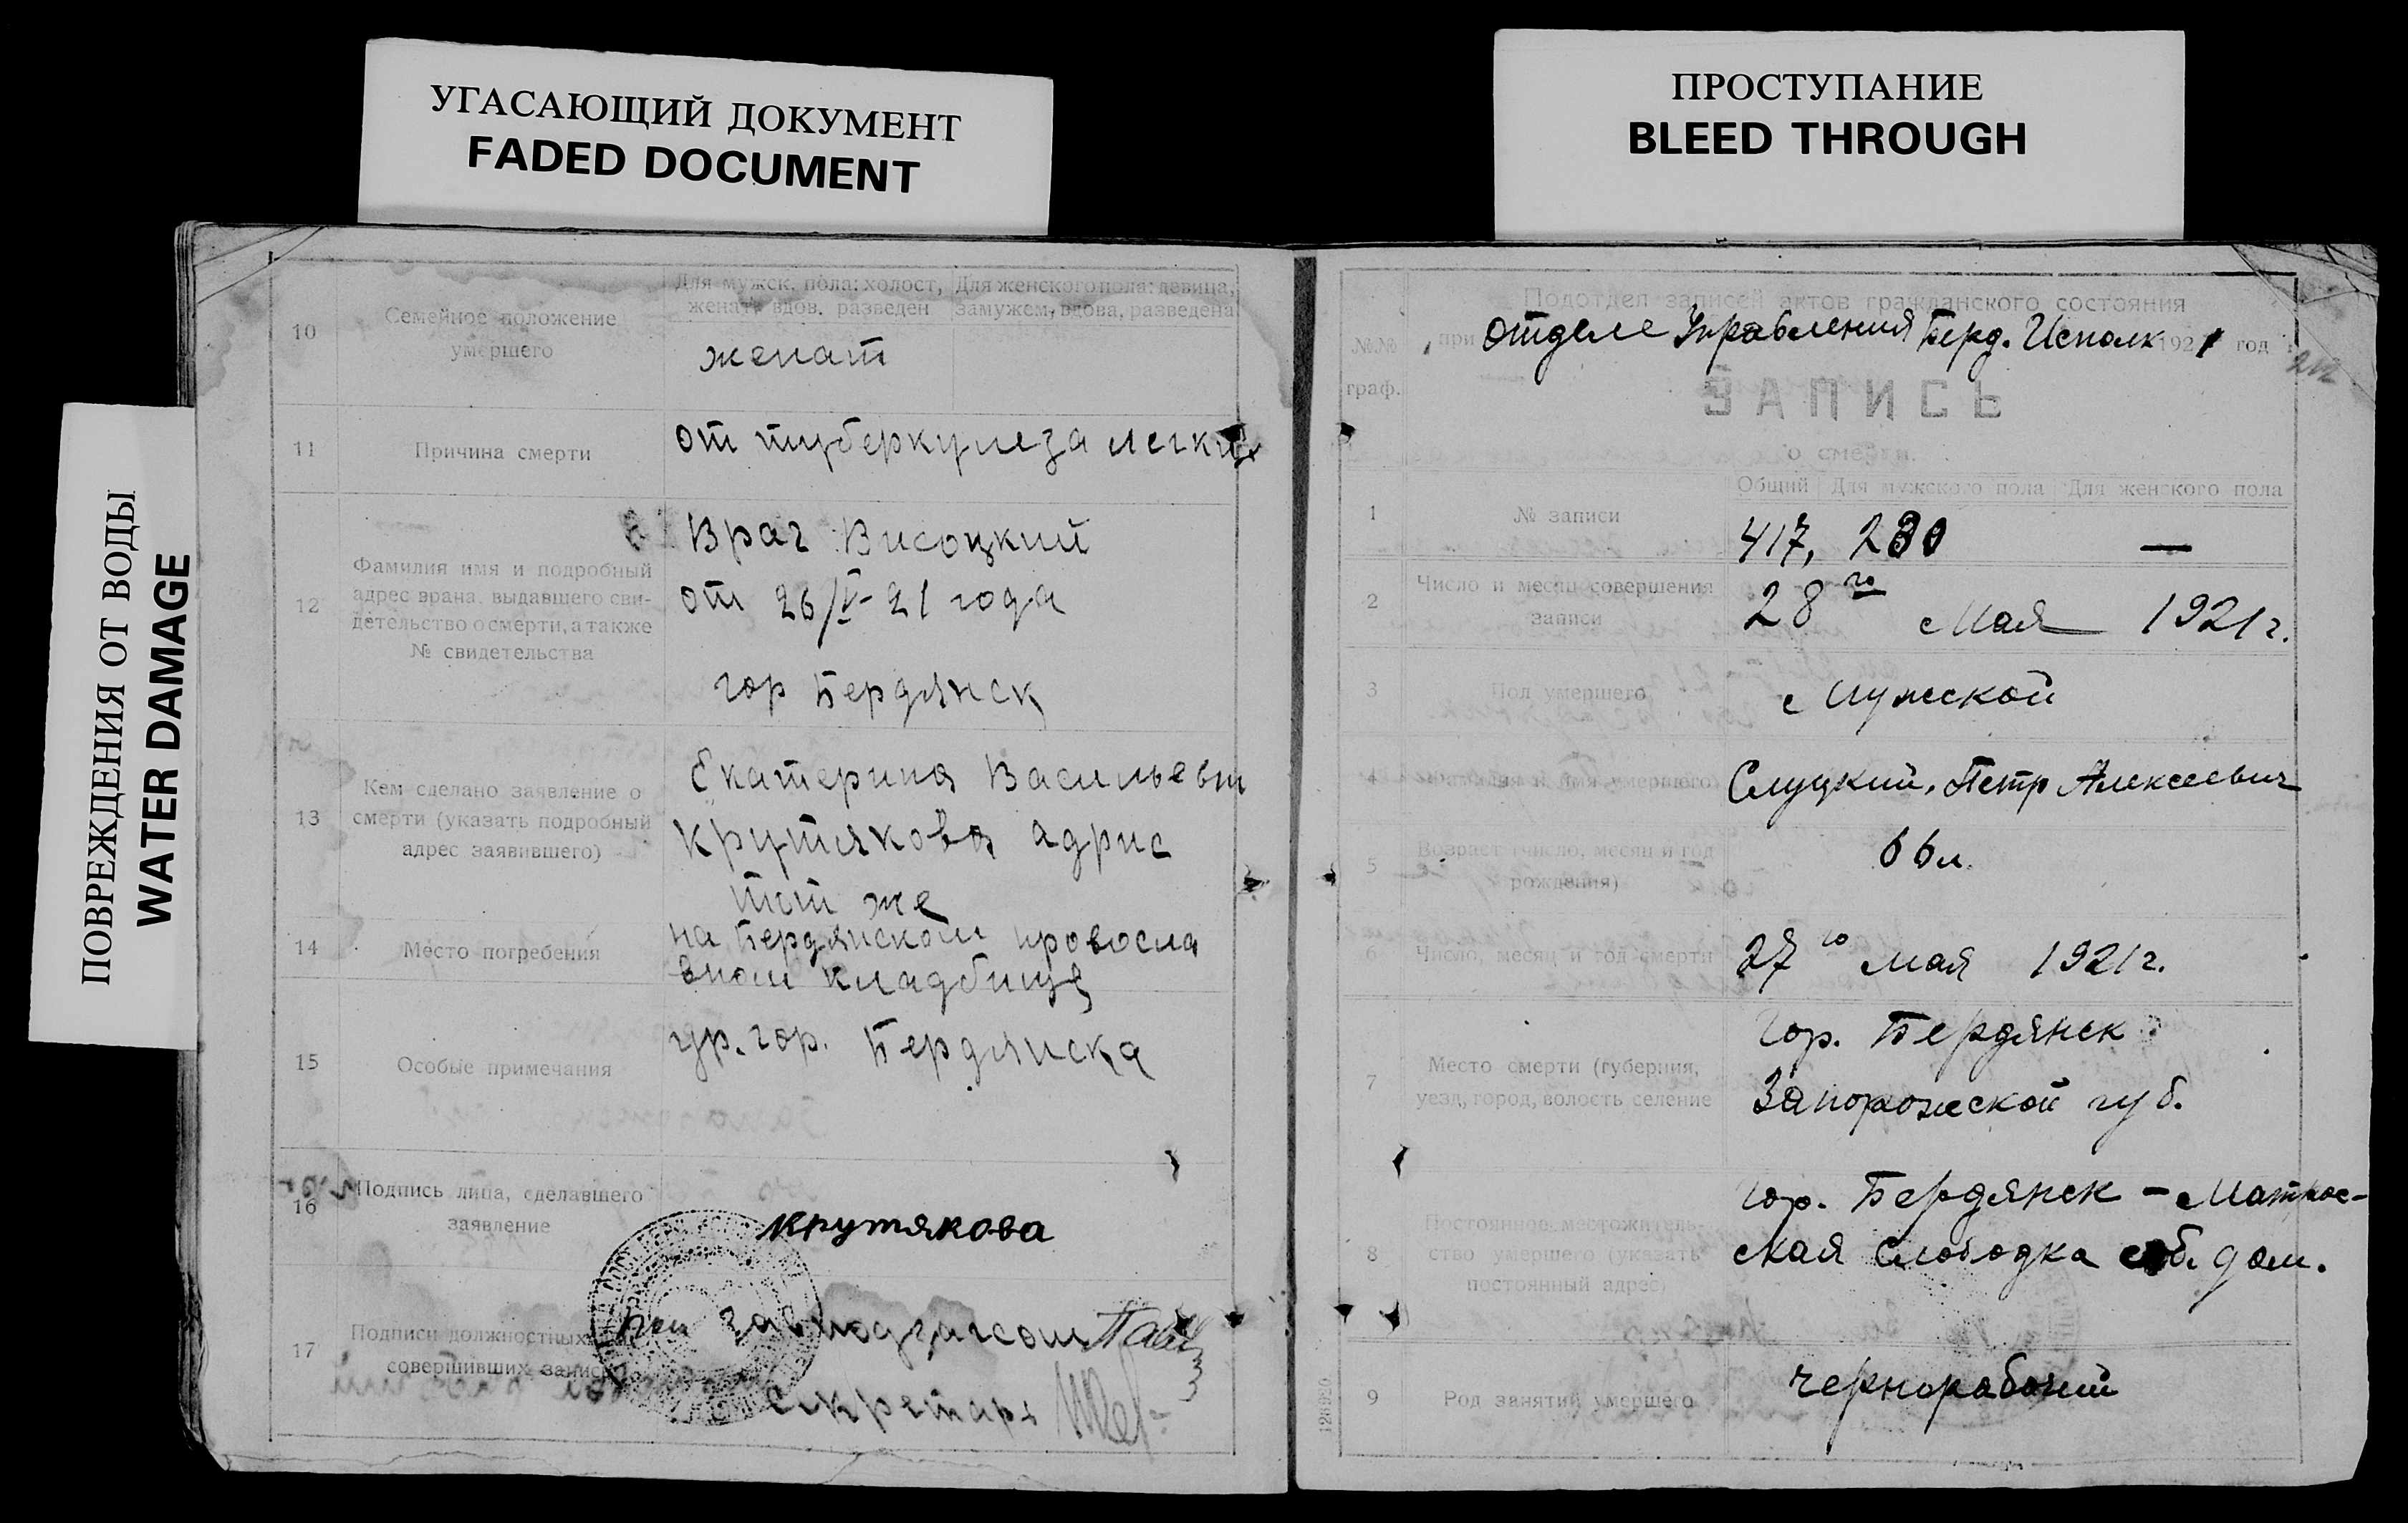 УГАСАЮЩИЙ ДОКУМЕНТ
FADED DOCUMENT
ПРОСТУПАНИЕ
BLEED THROUGH
ПОВРЕЖДЕНИЯ ОТ ВОДЫ
WATER DAMAGE
10
Семейное положение
умершего
Для мужск. пола: холост,
женат, вдов, разведен
Для женского пола: девица,
замужем, вдова, разведена
женат
11
Причина смерти
от туберкулеза легких
12
Фамилия имя и подробный
адрес врача, выдавшего сви-
детельство о смерти, а также
№ свидетельства
Врач Висоцкий
от 26/V-21 года
гор Бердянск
13
Кем сделано заявление о
смерти (указать подробный
адрес заявившего)
Екатерина Васильевн
Крутякова адрис
тот же
14
Место погребения
на Бердянском провосла
вном кладбище
15
Особые примечания
ур. гор. Бердянска
16
Подпись лица, сделавшего
заявление
Крутякова
17
Подписи должностных
совершивших запись
Завподзагсом
Секретарь
№№
граф.
Подотдел записей актов гражданского состояния
при отделе Управления Берд. Исполк 1921 год
212
ЗАПИСЬ
о смерти.
Общий Для мужского пола Для женского пола
1
№ записи
417, 230 —
2
Число и месяц совершения
записи
28го Мая 1921 г.
3
Пол умершего
Мужской
4
Фамилия и имя умершего
Слуцкий, Петр Алексеевич
5
Возраст (число, месяц и год
рождения)
66 л.
6
Число, месяц и год смерти
27го мая 1921 г.
7
Место смерти (губерния,
уезд, город, волость селение
Гор. Бердянск
Запорожской губ.
8
Постоянное местожитель-
ство умершего (указать
постоянный адрес)
Гор. Бердянск - Матрос-
ская Слободка соб. дом.
9
Род занятий умершего
Чернорабочий
126920